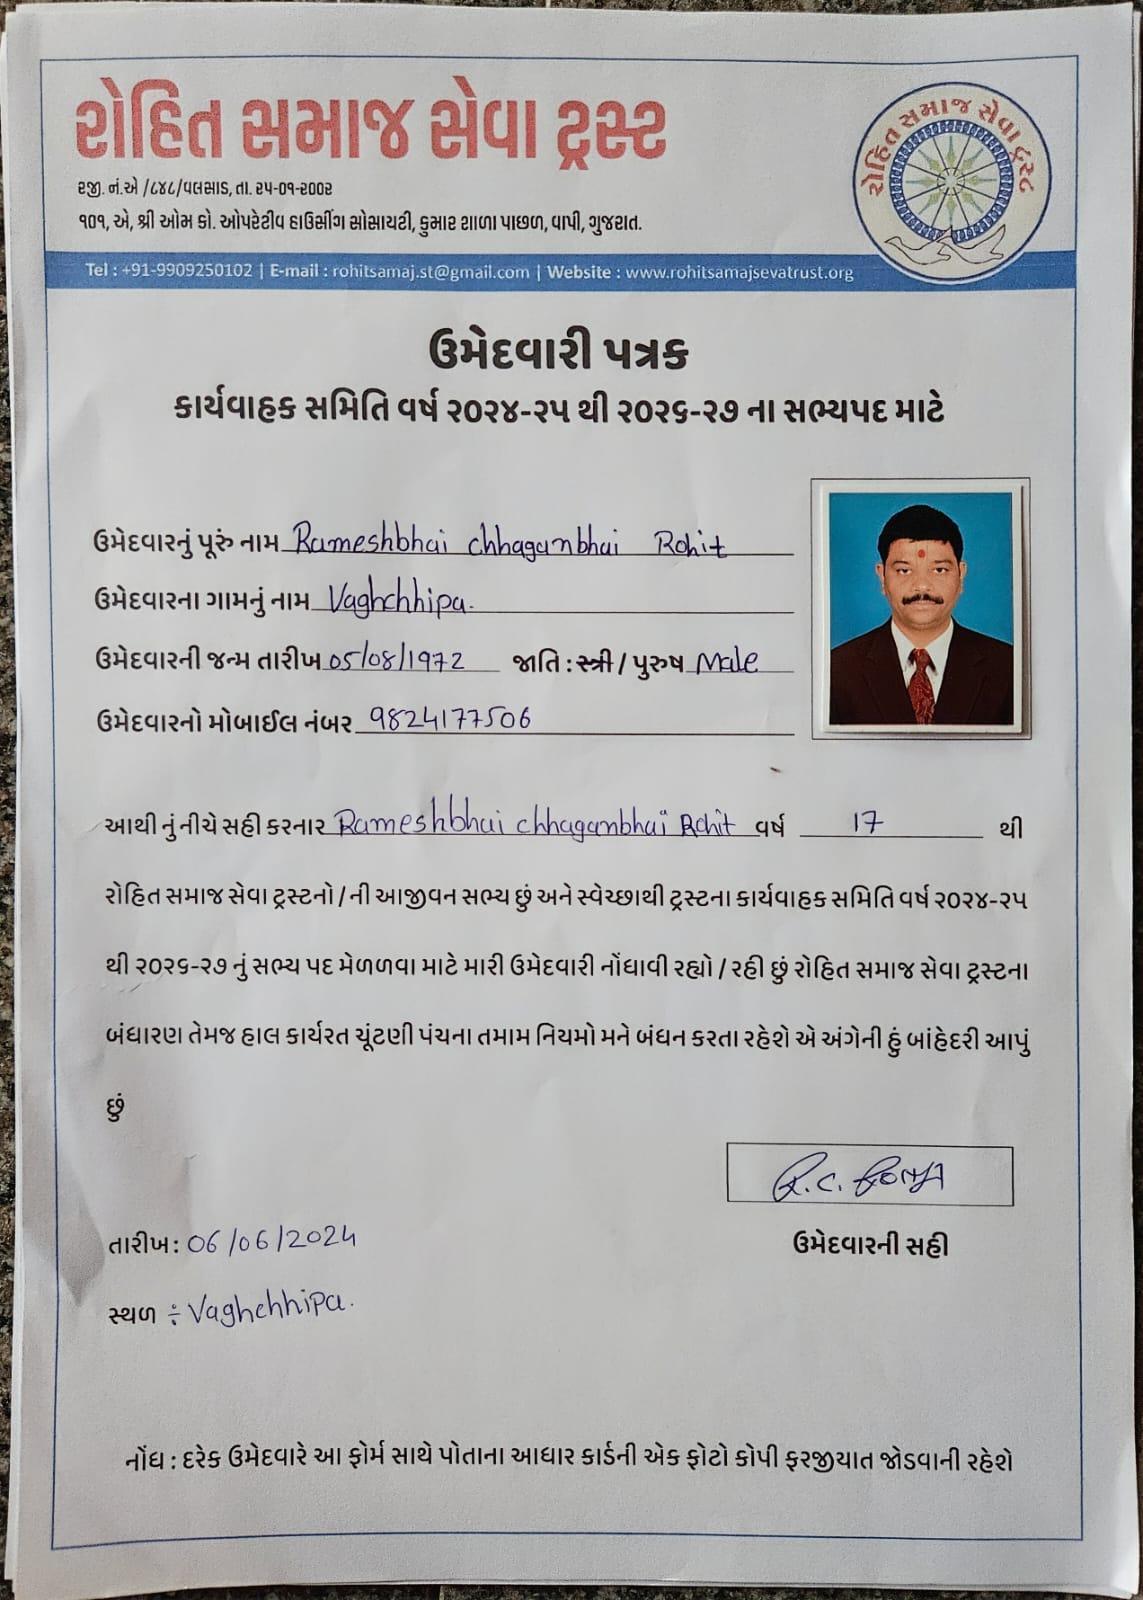 રોહિત સમાજ સેવા ટ્રસ્ટ
રોહિત સમાજ સેવા ટ્રસ્ટ
રજી. નં.એ /૮૪૮/વલસાડ, તા. ૨૫-૦૧-૨૦૦૨
૧૦૧, એ, શ્રી ઓમ કો. ઓપરેટીવ હાઉસીંગ સોસાયટી, કુમાર શાળા પાછળ, વાપી, ગુજરાત.
Tel : +91-9909250102 | E-mail : rohitsamaj.st@gmail.com | Website : www.rohitsamajsevatrust.org
ઉમેદવારી પત્રક
કાર્યવાહક સમિતિ વર્ષ ૨૦૨૪-૨૫ થી ૨૦૨૬-૨૭ ના સભ્યપદ માટે
ઉમેદવારનું પૂરું નામ Rameshbhai chhaganbhai Rohit
ઉમેદવારના ગામનું નામ Vaghchhipa.
ઉમેદવારની જન્મ તારીખ 05/08/1972 જાતિ : સ્ત્રી / પુરુષ Male
ઉમેદવારનો મોબાઈલ નંબર 9824177506
આથી નું નીચે સહી કરનાર Rameshbhai chhaganbhai Rohit વર્ષ 17 થી
રોહિત સમાજ સેવા ટ્રસ્ટનો / ની આજીવન સભ્ય છું અને સ્વેચ્છાથી ટ્રસ્ટના કાર્યવાહક સમિતિ વર્ષ ૨૦૨૪-૨૫
થી ૨૦૨૬-૨૭ નું સભ્ય પદ મેળળવા માટે મારી ઉમેદવારી નોંધાવી રહ્યો / રહી છું રોહિત સમાજ સેવા ટ્રસ્ટના
બંધારણ તેમજ હાલ કાર્યરત ચૂંટણી પંચના તમામ નિયમો મને બંધન કરતા રહેશે એ અંગેની હું બાંહેદરી આપું
છું
R.C.
ઉમેદવારની સહી
તારીખ: 06/06/2024
સ્થળ ÷ Vaghchhipa.
નોંધ : દરેક ઉમેદવારે આ ફોર્મ સાથે પોતાના આધાર કાર્ડની એક ફોટો કોપી ફરજીયાત જોડવાની રહેશે